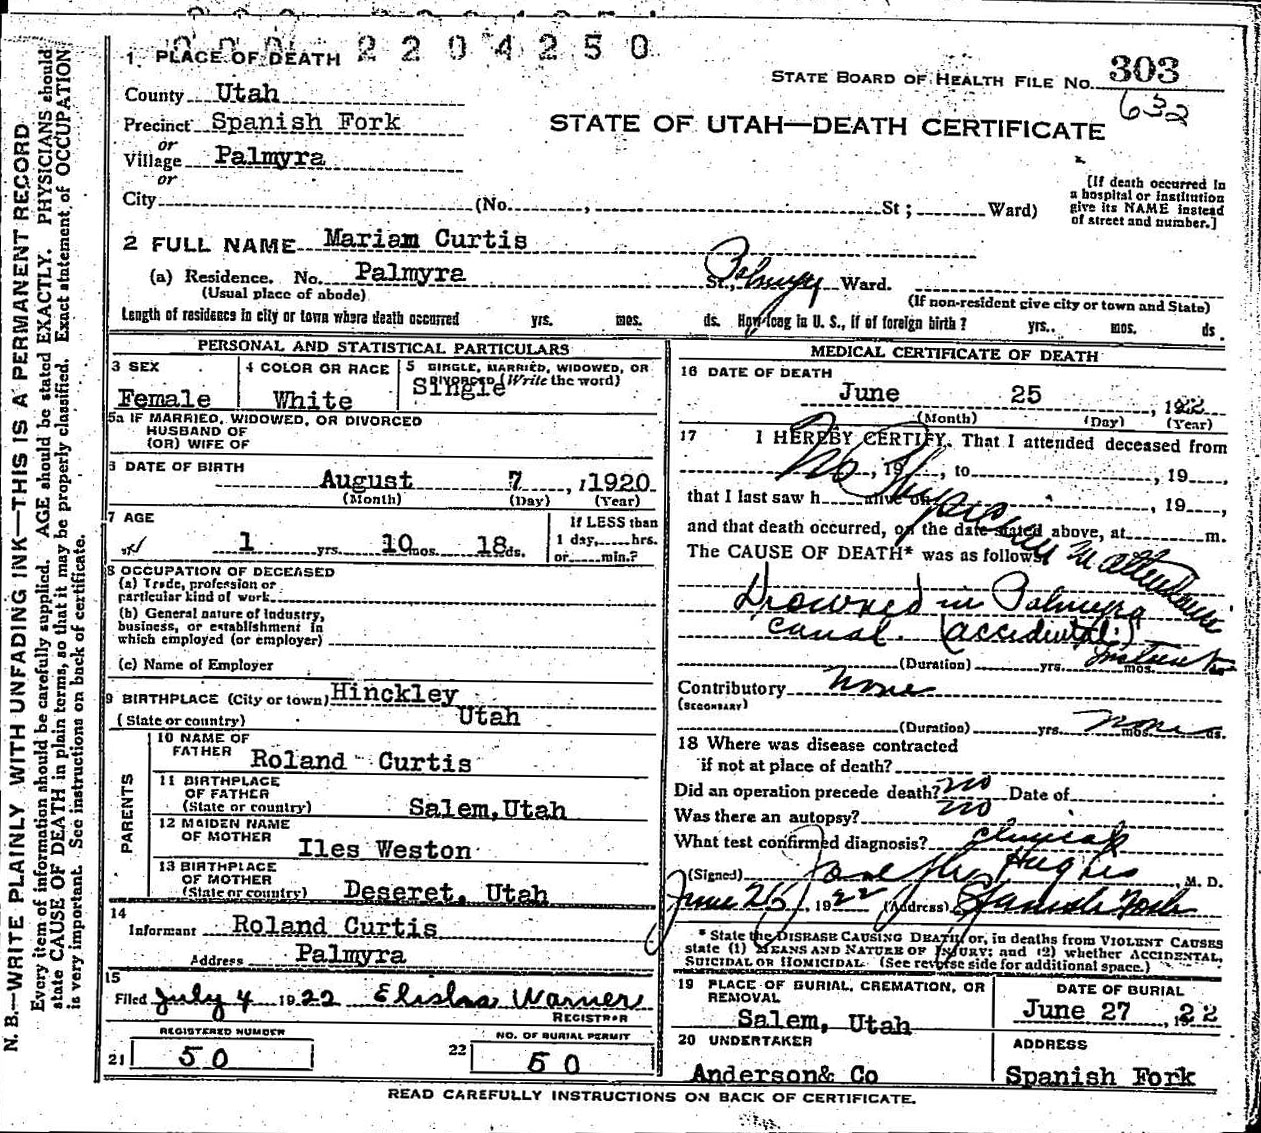 2204250
1 PLACE OF DEATH
STATE BOARD OF HEALTH FILE NO. 303
632
County Utah
Precinct Spanish Fork
STATE OF UTAH—DEATH CERTIFICATE
or
Village Palmyra
or
City (No. , St ; Ward)
[If death occurred in
a hospital or institution
give its NAME instead
of street and number.]
2 FULL NAME Mariam Curtis
(a) Residence. No. Palmyra St., Palmyra Ward.
(Usual place of abode)
(If non-resident give city or town and State)
Length of residence in city or town where death occurred yrs. mos. ds. How long in U. S., if of foreign birth ? yrs.. mos. ds.
PERSONAL AND STATISTICAL PARTICULARS
3 SEX
Female
4 COLOR OR RACE
White
5 SINGLE, MARRIED, WIDOWED, OR
DIVORCED (Write the word)
Single
5a IF MARRIED, WIDOWED, OR DIVORCED
HUSBAND OF
(OR) WIFE OF
6 DATE OF BIRTH
August 7, 1920
(Month) (Day) (Year)
7 AGE
1 yrs. 10 mos. 18 ds.
If LESS than
1 day, hrs.
or min.?
8 OCCUPATION OF DECEASED
(a) Trade, profession or
particular kind of work
(b) General nature of industry,
business, or establishment in
which employed (or employer)
(c) Name of Employer
9 BIRTHPLACE (City or town) Hinckley
(State or country) Utah
PARENTS
10 NAME OF
FATHER Roland Curtis
11 BIRTHPLACE
OF FATHER
(State or country) Salem, Utah
12 MAIDEN NAME
OF MOTHER Iles Weston
13 BIRTHPLACE
OF MOTHER
(State or country) Deseret, Utah
14
Informant Roland Curtis
Address Palmyra
15
Filed July 4 1922 Elisha Warner
REGISTRAR
REGISTERED NUMBER
21 50
NO. OF BURIAL PERMIT
22 50
MEDICAL CERTIFICATE OF DEATH
16 DATE OF DEATH
June 25, 1922
(Month) (Day) (Year)
17 I HEREBY CERTIFY, That I attended deceased from
, 19 , to , 19 ,
that I last saw h alive on , 19 ,
No Physician in attendance
and that death occurred, on the date stated above, at m.
The CAUSE OF DEATH* was as follows:
Drowned in Palmyra
Canal. (accidental)
(Duration) yrs. mos. ds. Instant
Contributory None
(SECONDARY)
(Duration) yrs. mos. ds. None
18 Where was disease contracted
if not at place of death?
Did an operation precede death? no Date of
Was there an autopsy? no
What test confirmed diagnosis? Clinical
(Signed) Hughes, M. D.
June 26, 1922 (Address) Spanish Fork
* State the DISEASE CAUSING DEATH, or, in deaths from VIOLENT CAUSES
state (1) MEANS AND NATURE OF INJURY; and (2) whether ACCIDENTAL,
SUICIDAL OR HOMICIDAL. (See reverse side for additional space.)
19 PLACE OF BURIAL, CREMATION, OR
REMOVAL
Salem, Utah
DATE OF BURIAL
June 27, 1922
20 UNDERTAKER
Anderson& Co
ADDRESS
Spanish Fork
READ CAREFULLY INSTRUCTIONS ON BACK OF CERTIFICATE.
N. B.—WRITE PLAINLY WITH UNFADING INK—THIS IS A PERMANENT RECORD
Every item of information should be carefully supplied. AGE should be stated EXACTLY. PHYSICIANS should
state CAUSE OF DEATH in plain terms, so that it may be properly classified. Exact statement of OCCUPATION
is very important. See instructions on back of certificate.